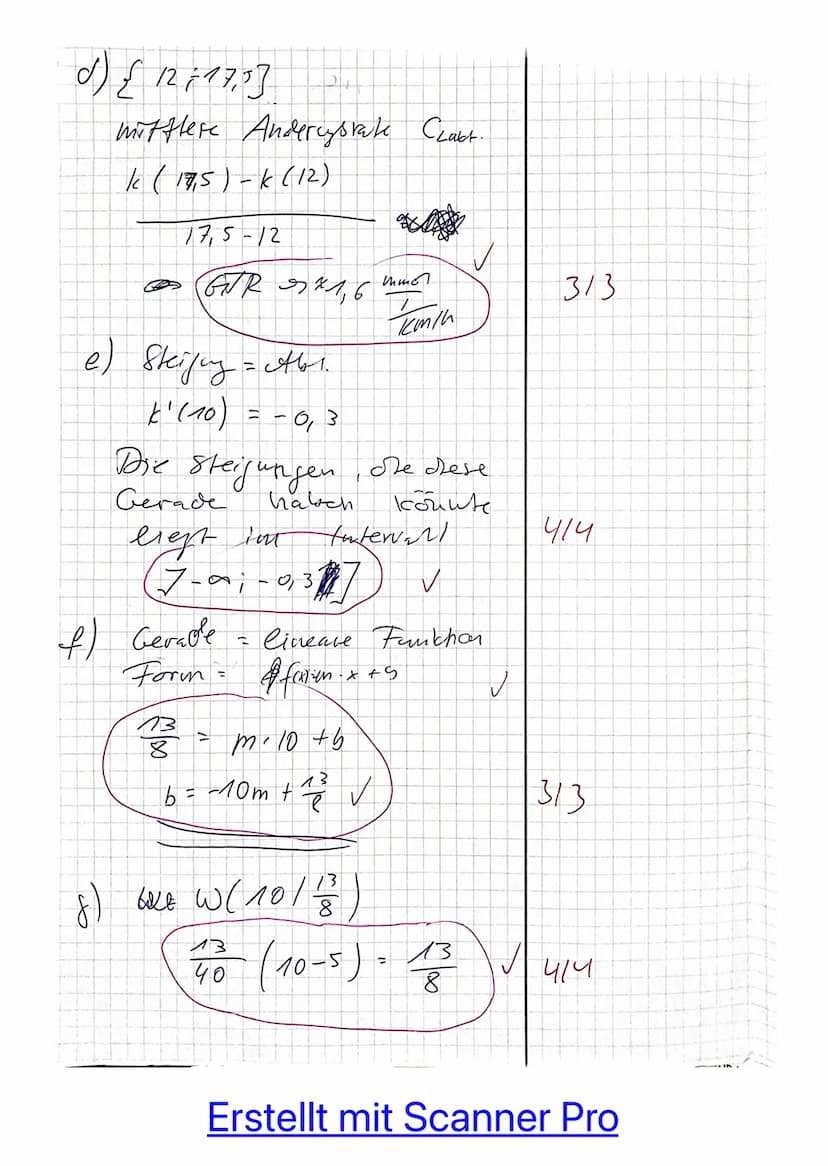 d) { 12 ; 17,5]
mittlere Änderungsrate CLakt.
k ( 17,5) - k (12)
17,5 - 12
GTR => ≈ 1,6 mmol
1
km/h
3/3
e) Steigung = Abl.
k'(10) = - 0,3
Die Steigungen, die diese
Gerade haben könnte
liegt im Intervall
4/4
]-∞; -0,3]
f) Gerade = lineare Funktion
Form = f(x)=m·x+b
13/8 = m·10 + b
b = -10m + 13/8
3/3
g) W(10/ 13/8)
13/40 (10-5) = 13/8
4/4
Erstellt mit Scanner Pro